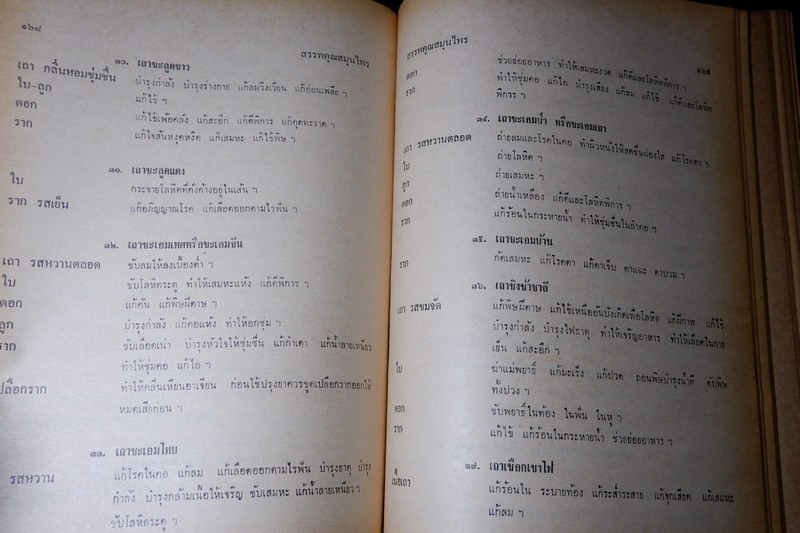 ๑๖๘
สรรพคุณสมุนไพร
๓๐. เถาชะลูดขาว
เถา กลิ่นหอมชุ่มชื่น บำรุงกำลัง บำรุงร่างกาย แก้ลมวิงเวียน แก้อ่อนเพลีย ฯ
ใบ-ลูก แก้ไข้ ฯ
ดอก แก้ไข้เพ้อคลั่ง แก้สะอึก แก้ดีพิการ แก้คุดทะราด ฯ
ราก แก้ไขสันหงุดหงิด แก้เสมหะ แก้ไข้พิษ ฯ
๓๑. เถาชะลูดแดง
ใบ กระจายโลหิตที่คั่งค้างอยู่ในเส้น ฯ
ราก รสเย็น แก้อภิญญาณโรค แก้เลือดออกตามไรฟัน ฯ
๓๒. เถาชะเอมเทศหรือชะเอมจีน
เถา รสหวานตลอด ขับลมให้ลงเบื้องต่ำ ฯ
ใบ ขับโลหิตระดู ทำให้เสมหะแห้ง แก้ดีพิการ ฯ
ดอก แก้คัน แก้พิษฝีดาษ ฯ
ลูก บำรุงกำลัง แก้คอแห้ง ทำให้อกชุ่ม ฯ
ราก ขับเลือดเน่า บำรุงหัวใจให้ชุ่มชื่น แก้กำเดา แก้น้ำลายเหนียว
ทำให้ชุ่มคอ แก้ไอ ฯ
เปลือกราก ทำให้คลื่นเหียนอาเจียน ก่อนใช้ปรุงยาควรขูดเปลือกรากออกให้
หมดเสียก่อน ฯ
๓๓. เถาชะเอมไทย
รสหวาน แก้โรคในคอ แก้ลม แก้เลือดออกตามไรฟัน บำรุงธาตุ บำรุง
กำลัง บำรุงกล้ามเนื้อให้เจริญ ขับเสมหะ แก้น้ำลายเหนียว ฯ
ขับโลหิตระดู ฯ
สรรพคุณสมุนไพร
๑๖๙
ดอก ช่วยย่อยอาหาร ทำให้เสมหะงวด แก้ดีและโลหิตพิการ ฯ
ราก ทำให้ชุ่มคอ แก้ไอ บำรุงเสียง แก้ลม แก้ไข้ แก้ดีและโลหิต
พิการ ฯ
๓๔. เถาชะเอมป่า หรือชะเอมเถา
เถา รสหวานตลอด ถ่ายลมและโรคในคอ ทำผิวหนังให้สดชื่นผ่องใส แก้โรคตา ฯ
ใบ ถ่ายโลหิต ฯ
ลูก ถ่ายเสมหะ ฯ
ดอก ถ่ายน้ำเหลือง แก้ดีและโลหิตพิการ ฯ
ราก แก้ร้อนในกระหายน้ำ ทำให้ชุ่มชื่นในลำคอ ฯ
๓๕. เถาชะเอมบ้าน
ราก กัดเสมหะ แก้โรคตา แก้ตาเจ็บ ตาแฉะ ตาบวม ฯ
๓๖. เถาชิงช้าชาลี
เถา รสขมจัด แก้พิษฝีดาษ แก้ไข้เหนืออันบังเกิดเพื่อโลหิต แก้ฝีกาฬ แก้ไข้
บำรุงกำลัง บำรุงไฟธาตุ ทำให้เจริญอาหาร ทำให้เลือดในกาย
เย็น แก้สะอึก ฯ
ใบ ฆ่าแม่พยาธิ์ แก้มะเร็ง แก้ปวด ถอนพิษบำรุงน้ำดี ดับพิษ
ทั้งปวง ฯ
ดอก ขับพยาธิ์ในท้อง ในฟัน ในหู ฯ
ราก แก้ไข้ แก้ร้อนในกระหายน้ำ ช่วยย่อยอาหาร ฯ
๓๗. เถาเชือกเขาไฟ
เนื้อเถา แก้ร้อนใน ระบายท้อง แก้ระส่ำระสาย แก้จุกเสียด แก้เสมหะ
แก้ลม ฯ